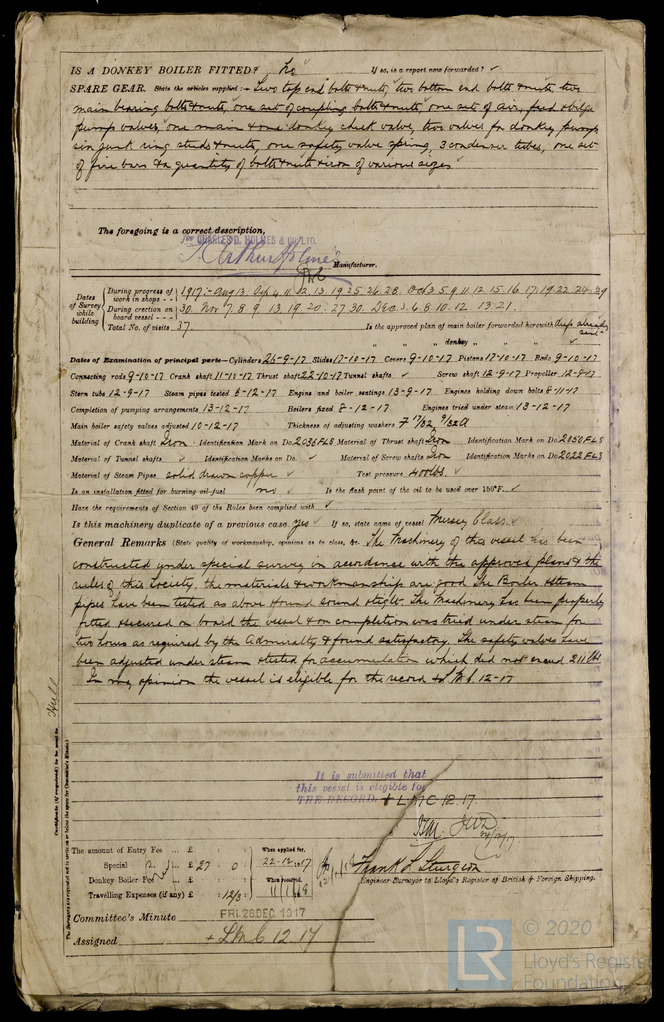 IS A DONKEY BOILER FITTED? No If so, is a report now forwarded? ✓
SPARE GEAR. State the articles supplied:— Two top end bolts & nuts, two bottom end bolts & nuts, two
main bearing bolts & nuts, one set of coupling bolts & nuts, one set of air, feed & bilge
pump valves, one main & one donkey check valve, two valves for donkey pumps,
six junk ring studs & nuts, one safety valve spring, 3 condenser tubes, one set
of fire bars & a quantity of bolts & nuts & iron of various sizes ✓
The foregoing is a correct description,
for CHARLES D. HOLMES & CO. LTD.
Arthur Holmes
Manufacturer.
Dates of Survey while building
During progress of work in shops - - 1917:- Aug 13. Sep 4. 11. 12. 13. 19. 25. 26. 28. Oct 3. 5. 9. 11. 12. 15. 16. 17. 19. 22. 24. 29
During erection on board vessel - - - 30. Nov 7. 8. 9. 13. 19. 20. 27. 30. Dec. 3. 6. 8. 10. 12. 13. 21.
Total No. of visits 37. Is the approved plan of main boiler forwarded herewith already sent
" " " donkey " " ✓
Dates of Examination of principal parts—Cylinders 26-9-17 Slides 17-10-17 Covers 9-10-17 Pistons 17-10-17 Rods 9-10-17
Connecting rods 9-10-17 Crank shaft 11-10-17 Thrust shaft 22-10-17 Tunnel shafts ✓ Screw shaft 12-9-17 Propeller 12-9-17
Stern tube 12-9-17 Steam pipes tested 6-12-17 Engine and boiler seatings 13-9-17 Engines holding down bolts 8-11-17
Completion of pumping arrangements 13-12-17 Boilers fixed 8-12-17 Engines tried under steam 13-12-17
Main boiler safety valves adjusted 10-12-17 Thickness of adjusting washers F 11/32 9/32 A
Material of Crank shaft Iron Identification Mark on Do. 2036FLS Material of Thrust shaft Iron Identification Mark on Do. 2050FLS
Material of Tunnel shafts ✓ Identification Marks on Do. ✓ Material of Screw shafts Iron Identification Marks on Do. 2022FLS
Material of Steam Pipes solid drawn copper ✓ Test pressure 400 lbs. ✓
Is an installation fitted for burning oil fuel no ✓ Is the flash point of the oil to be used over 150°F. ✓
Have the requirements of Section 49 of the Rules been complied with ✓
Is this machinery duplicate of a previous case yes ✓ If so, state name of vessel Mersey Class. ✓
General Remarks (State quality of workmanship, opinions as to class, &c. The Machinery of this vessel has been
constructed under special survey in accordance with the approved plans & the
rules of this Society, the materials & workmanship are good. The Boiler & steam
pipes have been tested as above & found sound & tight. The Machinery has been properly
fitted & secured on board the vessel & on completion was tried under steam for
two hours as required by the Admiralty & found satisfactory. The safety valves have
been adjusted under steam & tested for accumulation which did not exceed 211 lbs
In my opinion the vessel is eligible for the record + L M C 12-17
Hull
Certificate (if required) to be sent to
The Surveyors are requested not to write on or below the space for Committee's Minute.
It is submitted that
this vessel is eligible for
THE RECORD. + LMC 12.17.
The amount of Entry Fee ... £ : : When applied for,
Special ... £ 27 : 0 : 22-12-1917
Donkey Boiler Fee ... £ : : When received,
Travelling Expenses (if any) £ : 12/3 : 11/1/18
Frank L Sturgeon
Engineer Surveyor to Lloyd's Register of British & Foreign Shipping.
Committee's Minute FRI. 28 DEC. 1917
Assigned + L M C 12 17
© 2020
LR
Lloyd's Register
Foundation